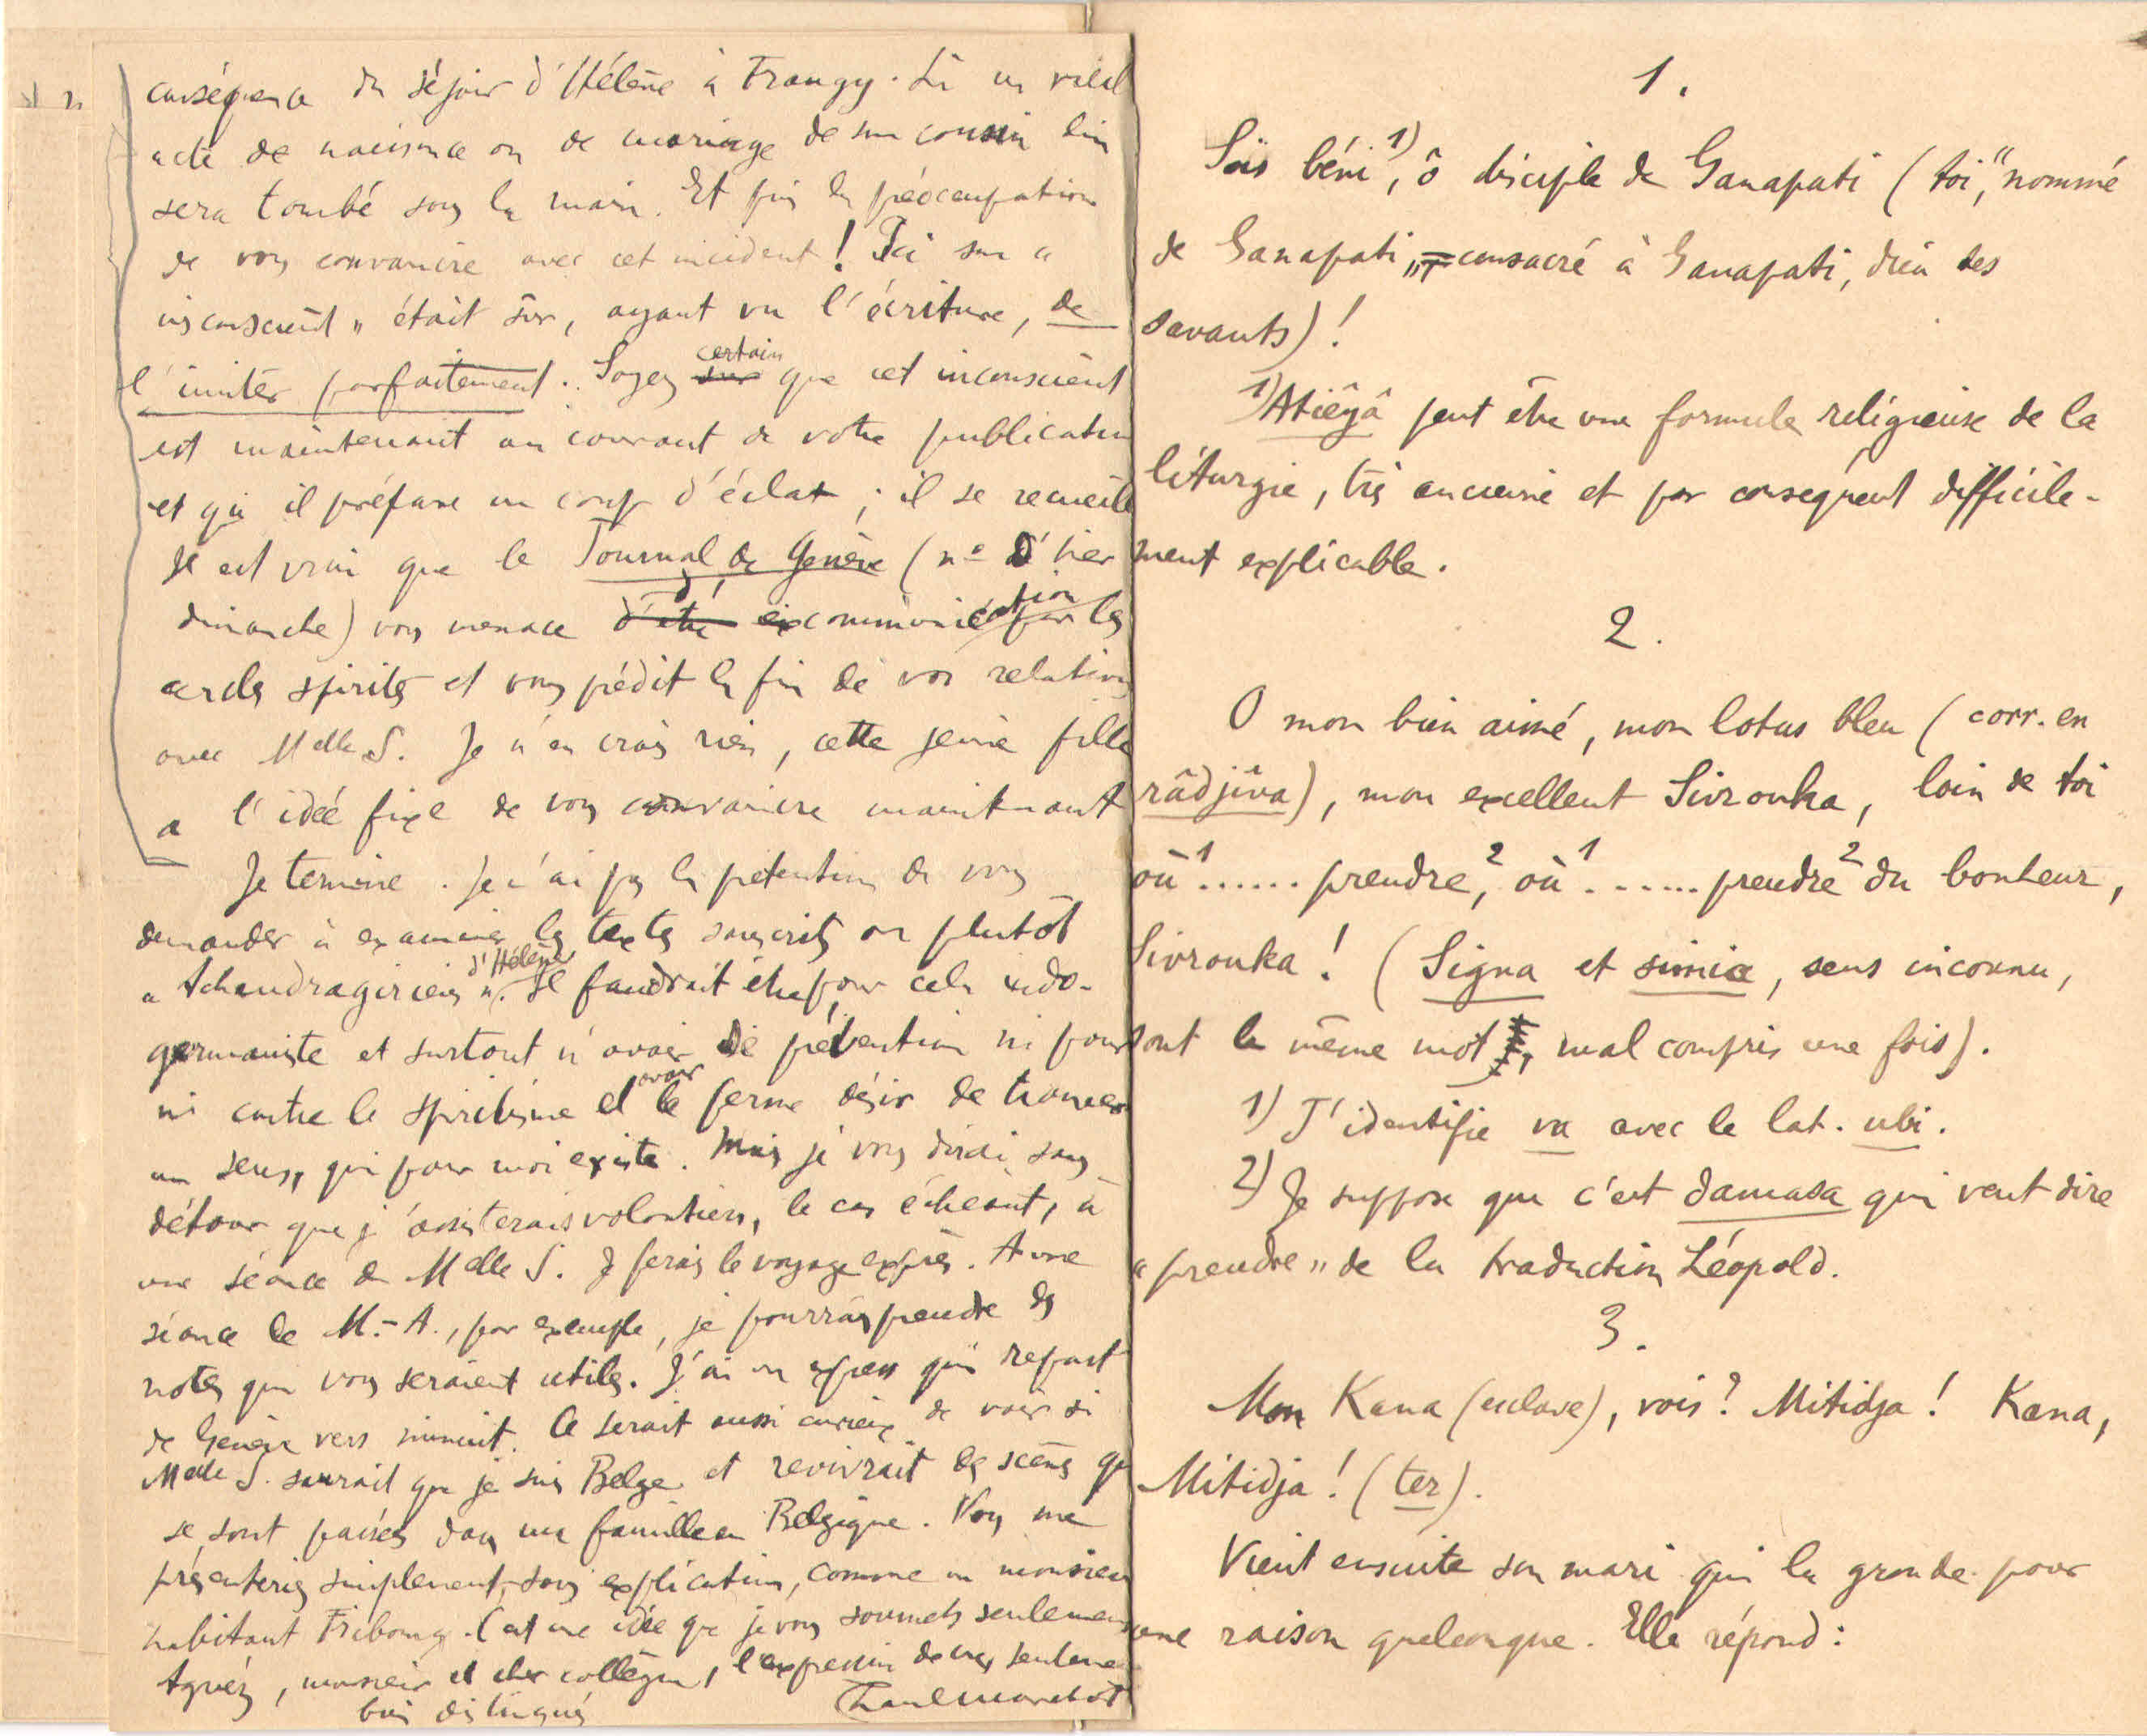 conséquence du séjour d'Hélène à Frangy. Là un vieil
acte de naissance ou de mariage de son cousin lui
sera tombé sous la main. Et puis la préoccupation
de vous convaincre avec cet incident! Ici son «
inconscient » était sûr, ayant vu l'écriture, de
l'imiter parfaitement. Soyez sur certain que cet inconscient
est maintenant au courant de votre publication
et qu'il prépare un coup d'éclat; il se recueille
Il est vrai que le Journal de Genève (no d'hier
dimanche) vous menace d'être excommunication par les
cercles spirites et vous prédit la fin de vos relations
avec Melle S. Je n'en crois rien, cette jeune fille
a l'idée fixe de vous convaincre maintenant
Je termine. Je n'ai pas la prétention de vous
demander à examiner les textes sanscrits ou plutôt
« tchandragiriens » d'Hélène. Il faudrait être pour cela indo-
germaniste et surtout n'avoir de prévention ni pour
ni contre le spiritisme et avoir le ferme désir de trouver
un sens, qui pour moi existe. Mais je vous dirai sans
détour que j'assisterais volontiers, le cas échéant, à
une séance de Melle S. Je ferais le voyage exprès. A une
séance de M.-A., par exemple, je pourrais prendre des
notes qui vous seraient utiles. J'ai un express qui repart
de Genève vers minuit. Ce serait aussi curieux de voir si
Melle S. saurait que je suis Belge et revivrait des scènes qui
se sont passées dans ma famille en Belgique. Vous me
présenteriez simplement, sans explication, comme un monsieur
habitant Fribourg. C'est une idée que je vous soumets seulement
Agréez, monsieur et cher collègue, l'expression de mes sentiments
bien distingués Paul Marchot
1.
Sois béni 1), ô disciple de Ganapati (toi, "nommé
de Ganapati„ = consacré à Ganapati, dieu des
savants)!
1) Atiêyâ peut être une formule religieuse de la
liturgie, très ancienne et par conséquent difficile-
ment explicable.
2.
O mon bien aimé, mon lotus bleu (corr. en
râdjîva), mon excellent Sivrouka, loin de toi
où 1 ...... prendre 2, où 1 ...... prendre 2 du bonheur,
Sivrouka! (Signa et simia, sens inconnu,
sont le même mot, mal compris une fois).
1) J'identifie va avec le lat. ubi.
2) Je suppose que c'est damasa qui veut dire
« prendre » de la traduction Léopold.
3.
Mon Kana (esclave), vois? Mitidja! Kana,
Mitidja! (ter).
Vient ensuite son mari qui la gronde pour
une raison quelconque. Elle répond: